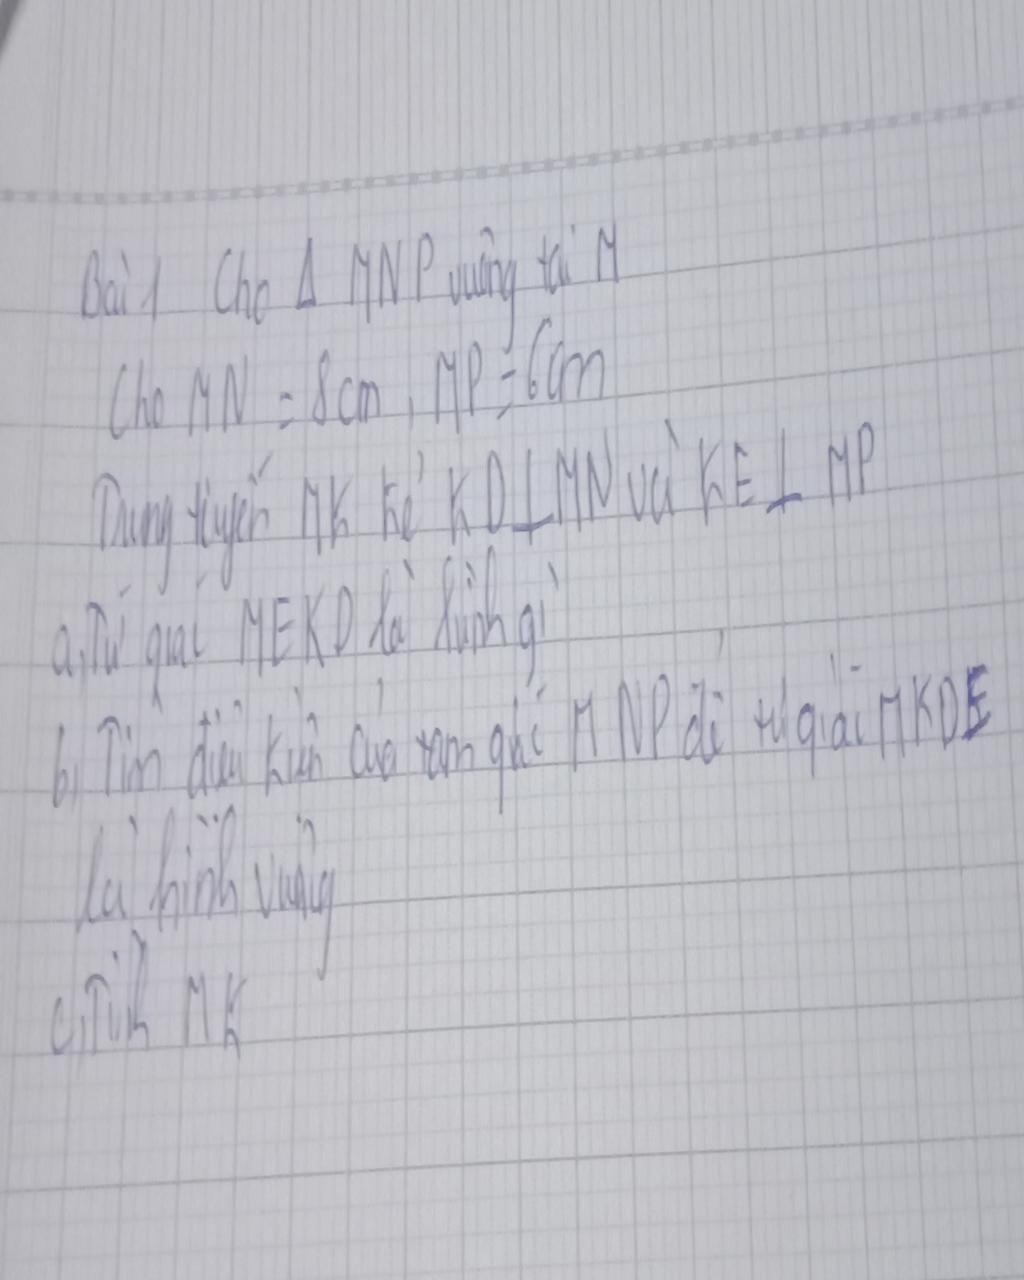 Bài 1 Cho Δ MNP vuông tại M
Cho MN = 8cm, MP = 6cm
Trung tuyến MK kẻ KD⊥MN và KE⊥ MP
a, Tứ giác MEKD là hình gì
b, Tìm điều kiện của tam giác MNP để tứ giác MKDE
là hình vuông
c, Tính MK